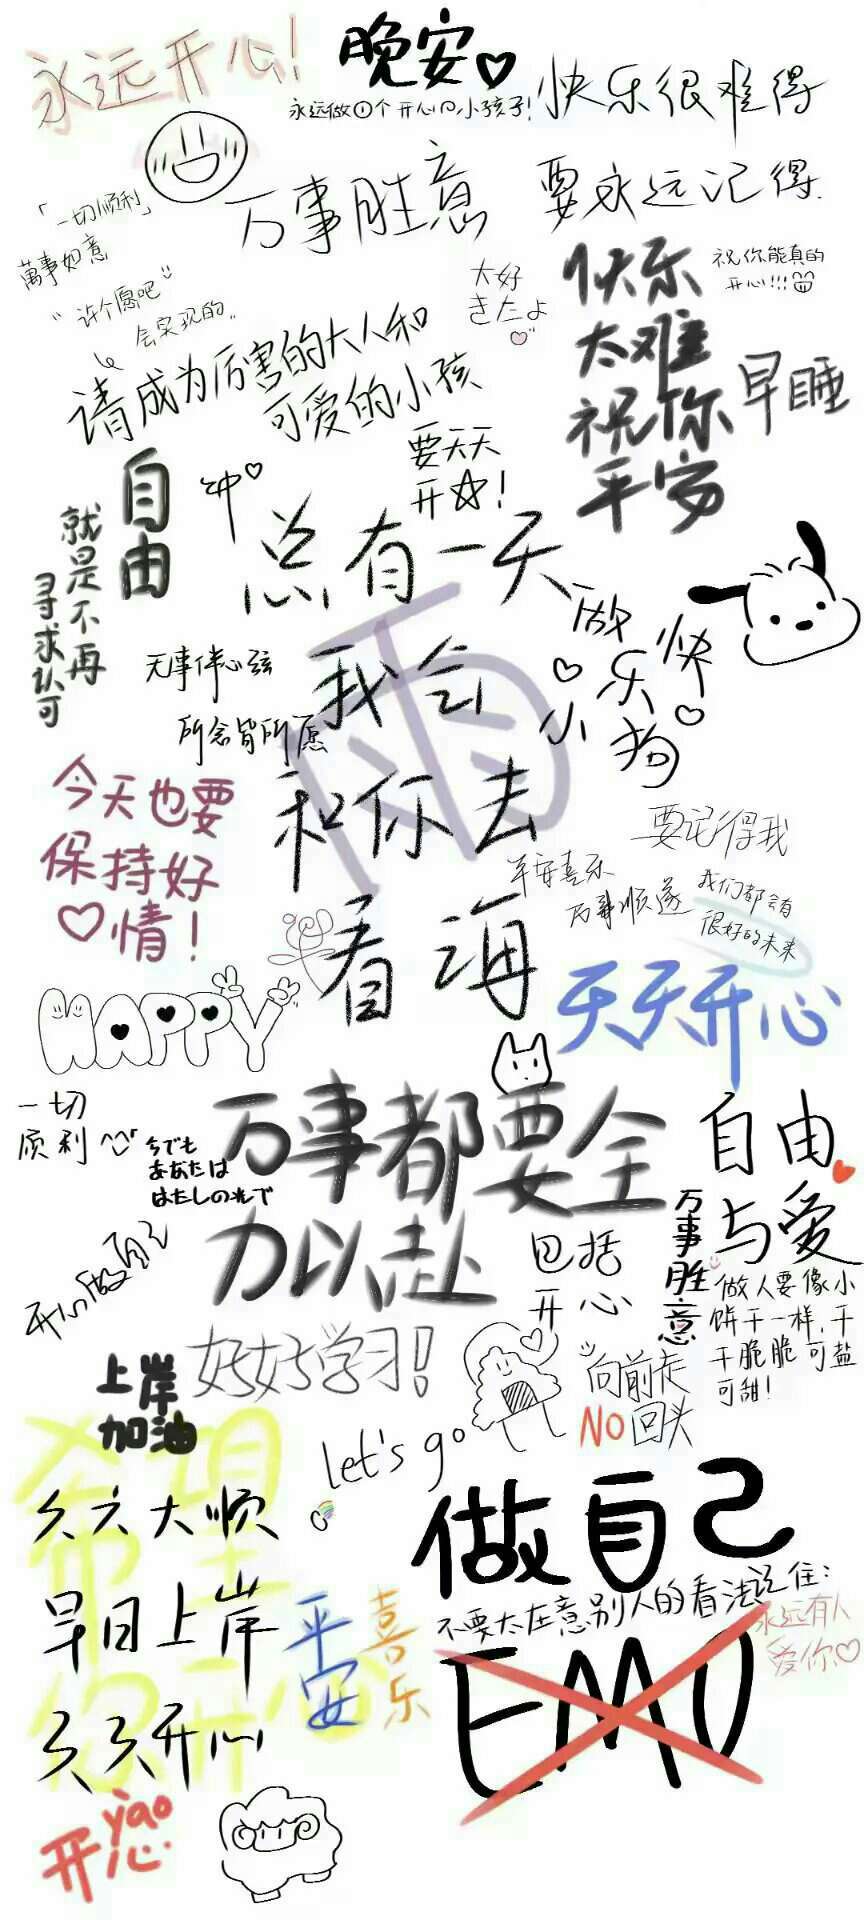 永远开心!
晚安♡
永远做①个开心の小孩子!
快乐很难得
要永远记得.
万事胜意
「一切顺利」
萬事如意
“许个愿吧
会实现的..
大好
きたよ
快乐
太难
祝你
平安
祝你能真的
开心!!!
早睡
请成为厉害的大人和
可爱的小孩
要天天
开☆!
自由
就是不再
寻求认可
冲♡
总有一天
我会
和你去
看海
雨
做快乐小狗
无事伴心弦
所念皆所愿
今天也要
保持好
♡情!
要记得我
平安喜乐
万事顺遂
我们都会有
很好的未来
HAPPY
天天开心
一切
顺利
今でも
あなたは
わたしの光で
万事都要全
力以赴
包括
开心
自由
与爱
万事胜意
开心做自己
做人要像小
饼干一样,干
干脆脆可盐
可甜!
好好学习!
上岸
加油
向前走
NO回头
let's go
希望
你开心
六六大顺
早日上岸
天天开心
平安
喜乐
做自己
不要太在意别人的看法记住:
永远有人
爱你♡
EMO
yao
开心